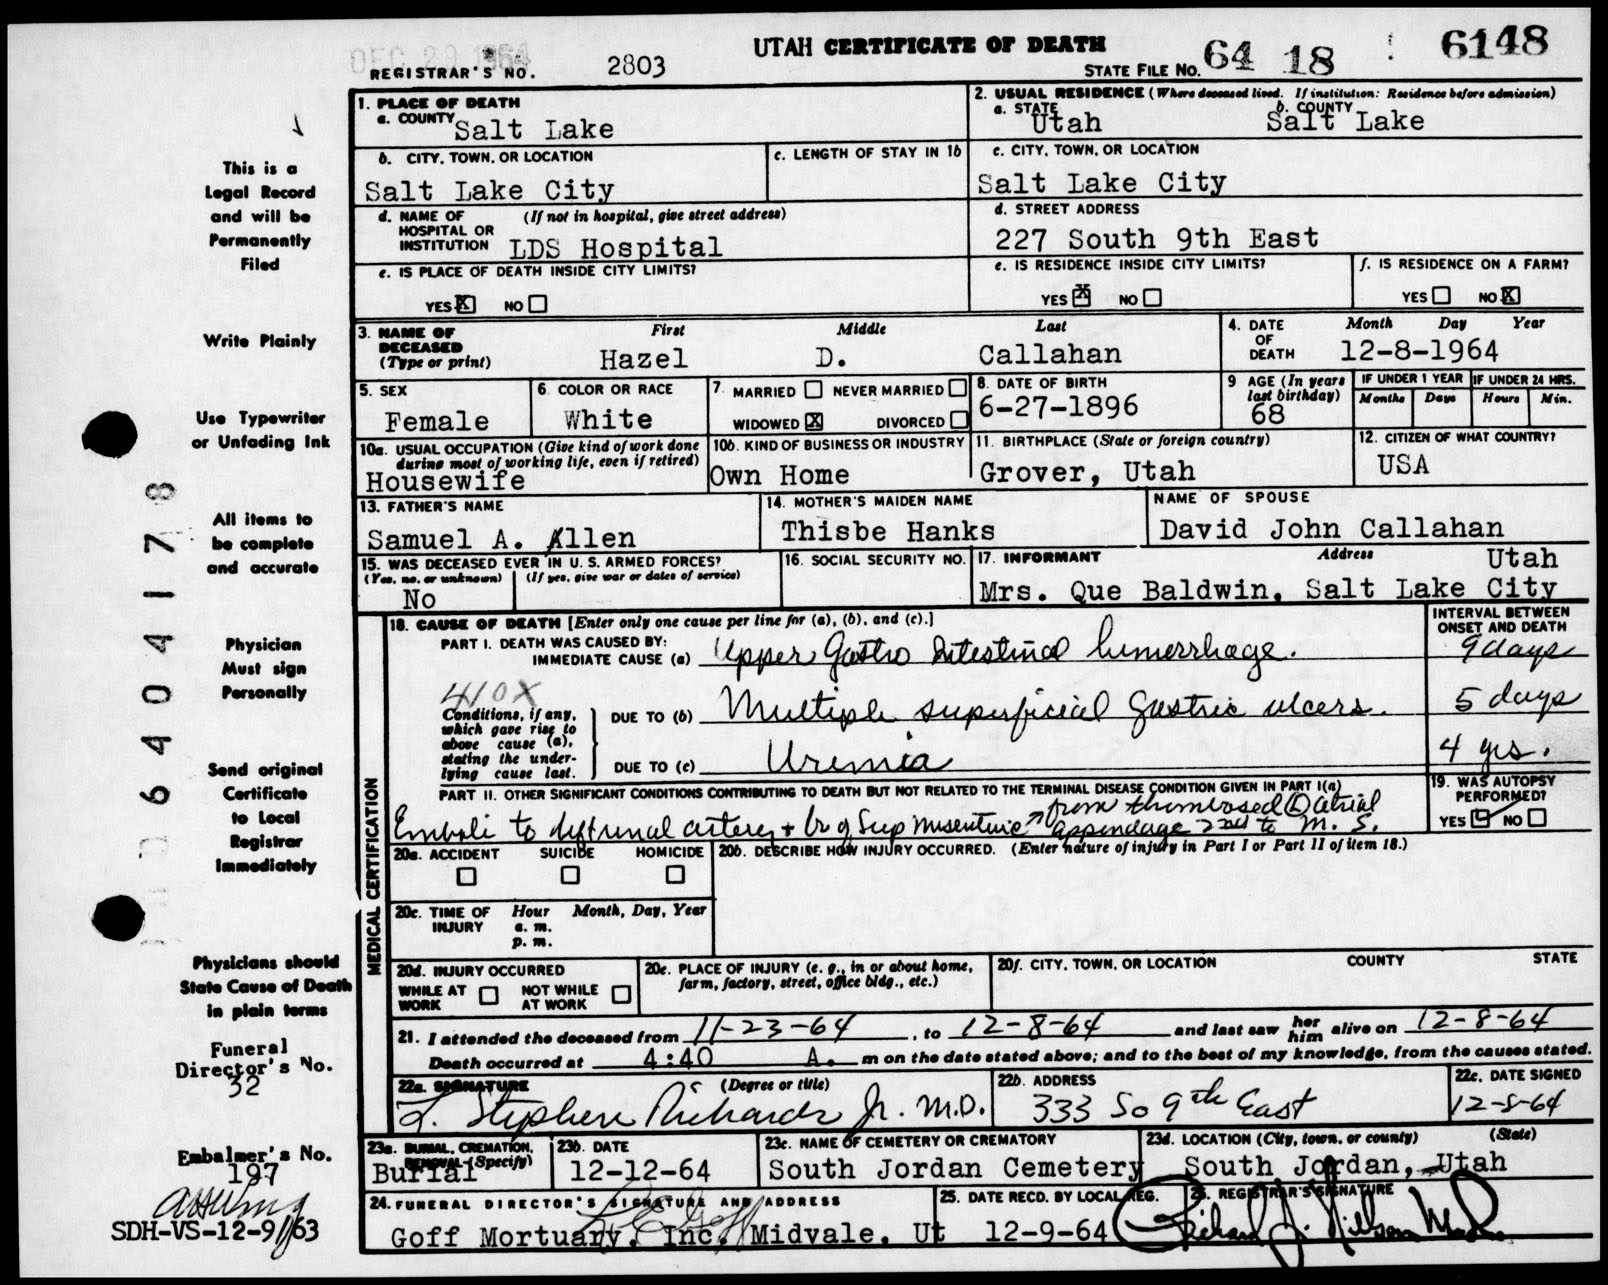 DEC 29 1964
UTAH CERTIFICATE OF DEATH
REGISTRAR'S NO. 2803
STATE FILE No. 64 18 6148
This is a
Legal Record
and will be
Permanently
Filed
Write Plainly
Use Typewriter
or Unfading Ink
All items to
be complete
and accurate
Physician
Must sign
Personally
Send original
Certificate
to Local
Registrar
Immediately
Physicians should
State Cause of Death
in plain terms
Funeral
Director's No.
32
Embalmer's No.
197
SDH-VS-12-9/63
6404178
1. PLACE OF DEATH
a. COUNTY Salt Lake
2. USUAL RESIDENCE (Where deceased lived. If institution: Residence before admission)
a. STATE Utah b. COUNTY Salt Lake
b. CITY, TOWN, OR LOCATION
Salt Lake City
c. LENGTH OF STAY IN 1b
c. CITY, TOWN, OR LOCATION
Salt Lake City
d. NAME OF HOSPITAL OR INSTITUTION (If not in hospital, give street address)
LDS Hospital
d. STREET ADDRESS
227 South 9th East
e. IS PLACE OF DEATH INSIDE CITY LIMITS?
YES X NO
e. IS RESIDENCE INSIDE CITY LIMITS?
YES X NO
f. IS RESIDENCE ON A FARM?
YES NO X
3. NAME OF DECEASED (Type or print)
First Middle Last
Hazel D. Callahan
4. DATE OF DEATH
Month Day Year
12-8-1964
5. SEX
Female
6. COLOR OR RACE
White
7. MARRIED NEVER MARRIED
WIDOWED X DIVORCED
8. DATE OF BIRTH
6-27-1896
9 AGE (In years last birthday)
68
IF UNDER 1 YEAR
Months Days
IF UNDER 24 HRS.
Hours Min.
10a. USUAL OCCUPATION (Give kind of work done
during most of working life, even if retired)
Housewife
10b. KIND OF BUSINESS OR INDUSTRY
Own Home
11. BIRTHPLACE (State or foreign country)
Grover, Utah
12. CITIZEN OF WHAT COUNTRY?
USA
13. FATHER'S NAME
Samuel A. Allen
14. MOTHER'S MAIDEN NAME
Thisbe Hanks
NAME OF SPOUSE
David John Callahan
15. WAS DECEASED EVER IN U. S. ARMED FORCES?
(Yes, no, or unknown) (If yes, give war or dates of service)
No
16. SOCIAL SECURITY NO.
17. INFORMANT Address
Utah
Mrs. Que Baldwin, Salt Lake City
MEDICAL CERTIFICATION
18. CAUSE OF DEATH [Enter only one cause per line for (a), (b), and (c).]
INTERVAL BETWEEN
ONSET AND DEATH
PART I. DEATH WAS CAUSED BY:
IMMEDIATE CAUSE (a) Upper Gastro Intestinal hemorrhage. 9 days
410X
Conditions, if any,
which gave rise to
above cause (a),
stating the under-
lying cause last.
DUE TO (b) Multiple superficial gastric ulcers. 5 days
DUE TO (c) Uremia 4 yrs.
PART II. OTHER SIGNIFICANT CONDITIONS CONTRIBUTING TO DEATH BUT NOT RELATED TO THE TERMINAL DISEASE CONDITION GIVEN IN PART I(a)
from thrombosed L atrial
Emboli to left renal artery + br of Sup Mesenteric appendage 2nd to M. S.
19. WAS AUTOPSY
PERFORMED?
YES NO
20a. ACCIDENT SUICIDE HOMICIDE
20b. DESCRIBE HOW INJURY OCCURRED. (Enter nature of injury in Part I or Part II of item 18.)
20c. TIME OF INJURY
Hour Month, Day, Year
a. m.
p. m.
20d. INJURY OCCURRED
WHILE AT WORK NOT WHILE AT WORK
20e. PLACE OF INJURY (e. g., in or about home,
farm, factory, street, office bldg., etc.)
20f. CITY, TOWN, OR LOCATION COUNTY STATE
21. I attended the deceased from 11-23-64, to 12-8-64 and last saw her him alive on 12-8-64
Death occurred at 4:40 A. m on the date stated above; and to the best of my knowledge, from the causes stated.
22a. SIGNATURE (Degree or title)
L. Stephen Richards Jr. M.D.
22b. ADDRESS
333 So 9th East
22c. DATE SIGNED
12-8-64
23a. BURIAL, CREMATION, REMOVAL (Specify)
Burial
23b. DATE
12-12-64
23c. NAME OF CEMETERY OR CREMATORY
South Jordan Cemetery
23d. LOCATION (City, town, or county) (State)
South Jordan, Utah
24. FUNERAL DIRECTOR'S SIGNATURE AND ADDRESS
Goff Mortuary, Inc. Midvale, Ut
25. DATE RECD. BY LOCAL REG.
12-9-64
26. REGISTRAR'S SIGNATURE